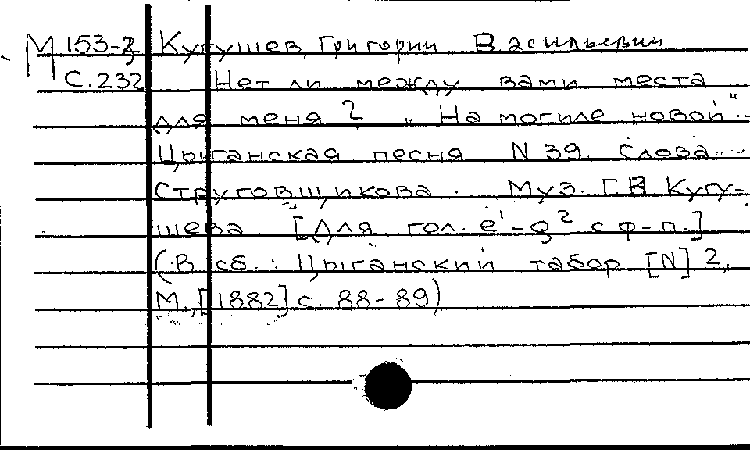 М 153-2 Кугушев, Григорий Васильевич
С. 232 Нет ли между вами места
для меня? „На могиле новой"...
Цыганская песня N 39. Слова
Струговщикова. Муз. Г. В. Кугу-
шева [Для гол. e¹-g² с ф-п.]
(В сб.: Цыганский табор [N] 2,
М., [1882] с. 88-89)